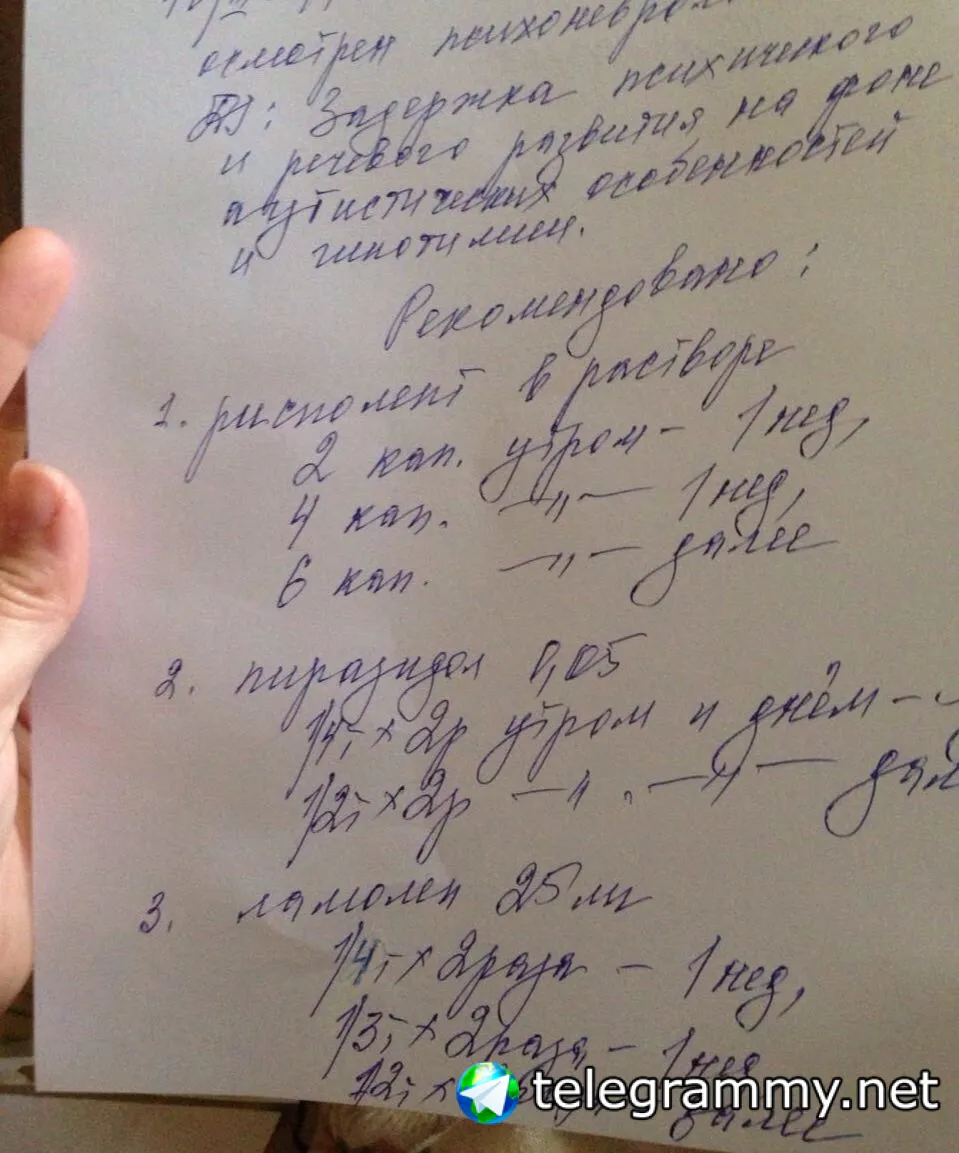 осмотрен психоневрол
DS: Задержка психического
и речевого развития на фоне
аутистических особенностей
и гипотимии.
Рекомендовано:
1. рисполепт в растворе
2 кап. утром - 1 нед,
4 кап. —"— 1 нед,
6 кап. —"— далее
2. пиразидол 0,05
1/4т × 2р утром и днём -
1/2т × 2р —"— —"— дал
3. ламолеп 25 мг
1/4т × 2 раза - 1 нед,
1/3т × 2 раза - 1 нед
1/2т × далее
telegrammy.net